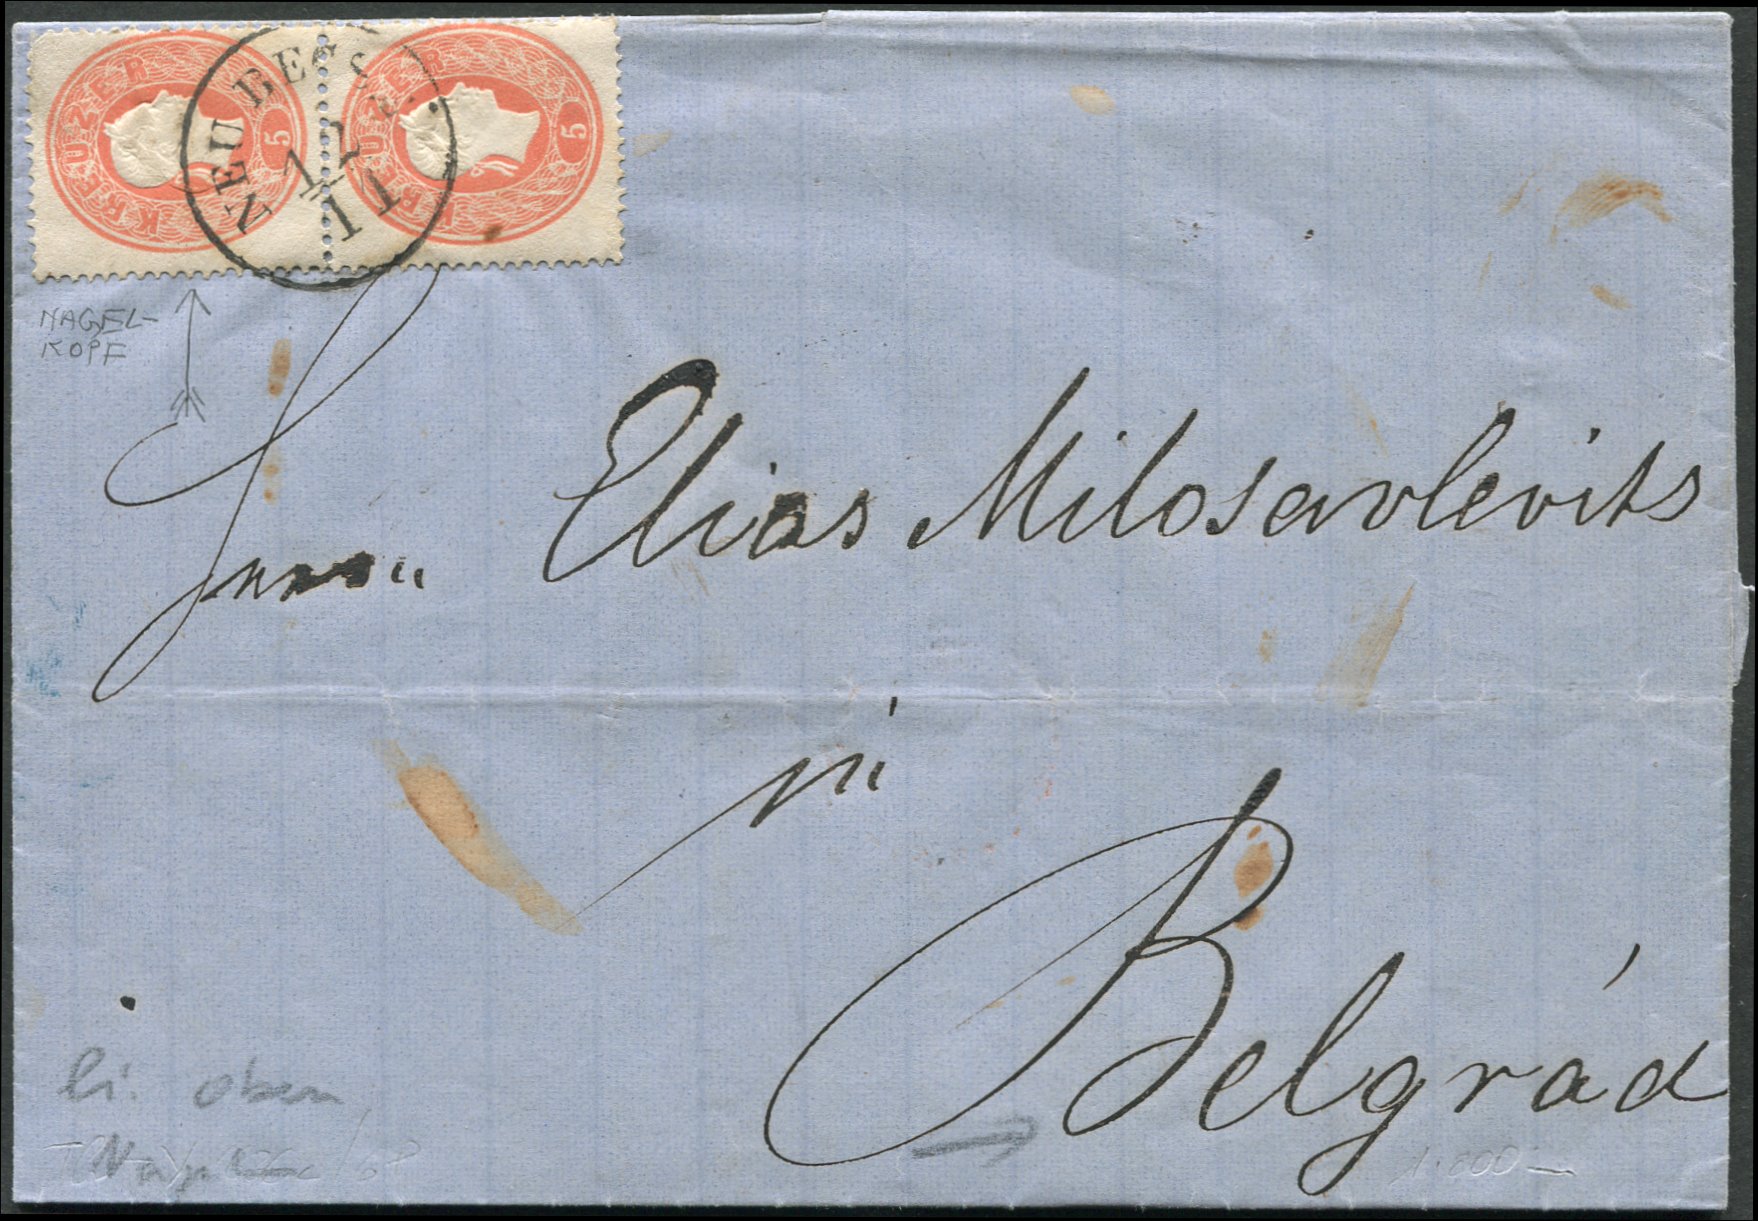 KREUZER 5
KREUZER 5
NEU BECSE
12
11
NAGEL-
KOPF
Herrn Elias Milosavlevits
in
Belgrád
li. oben
Nagelkopf
1.000-